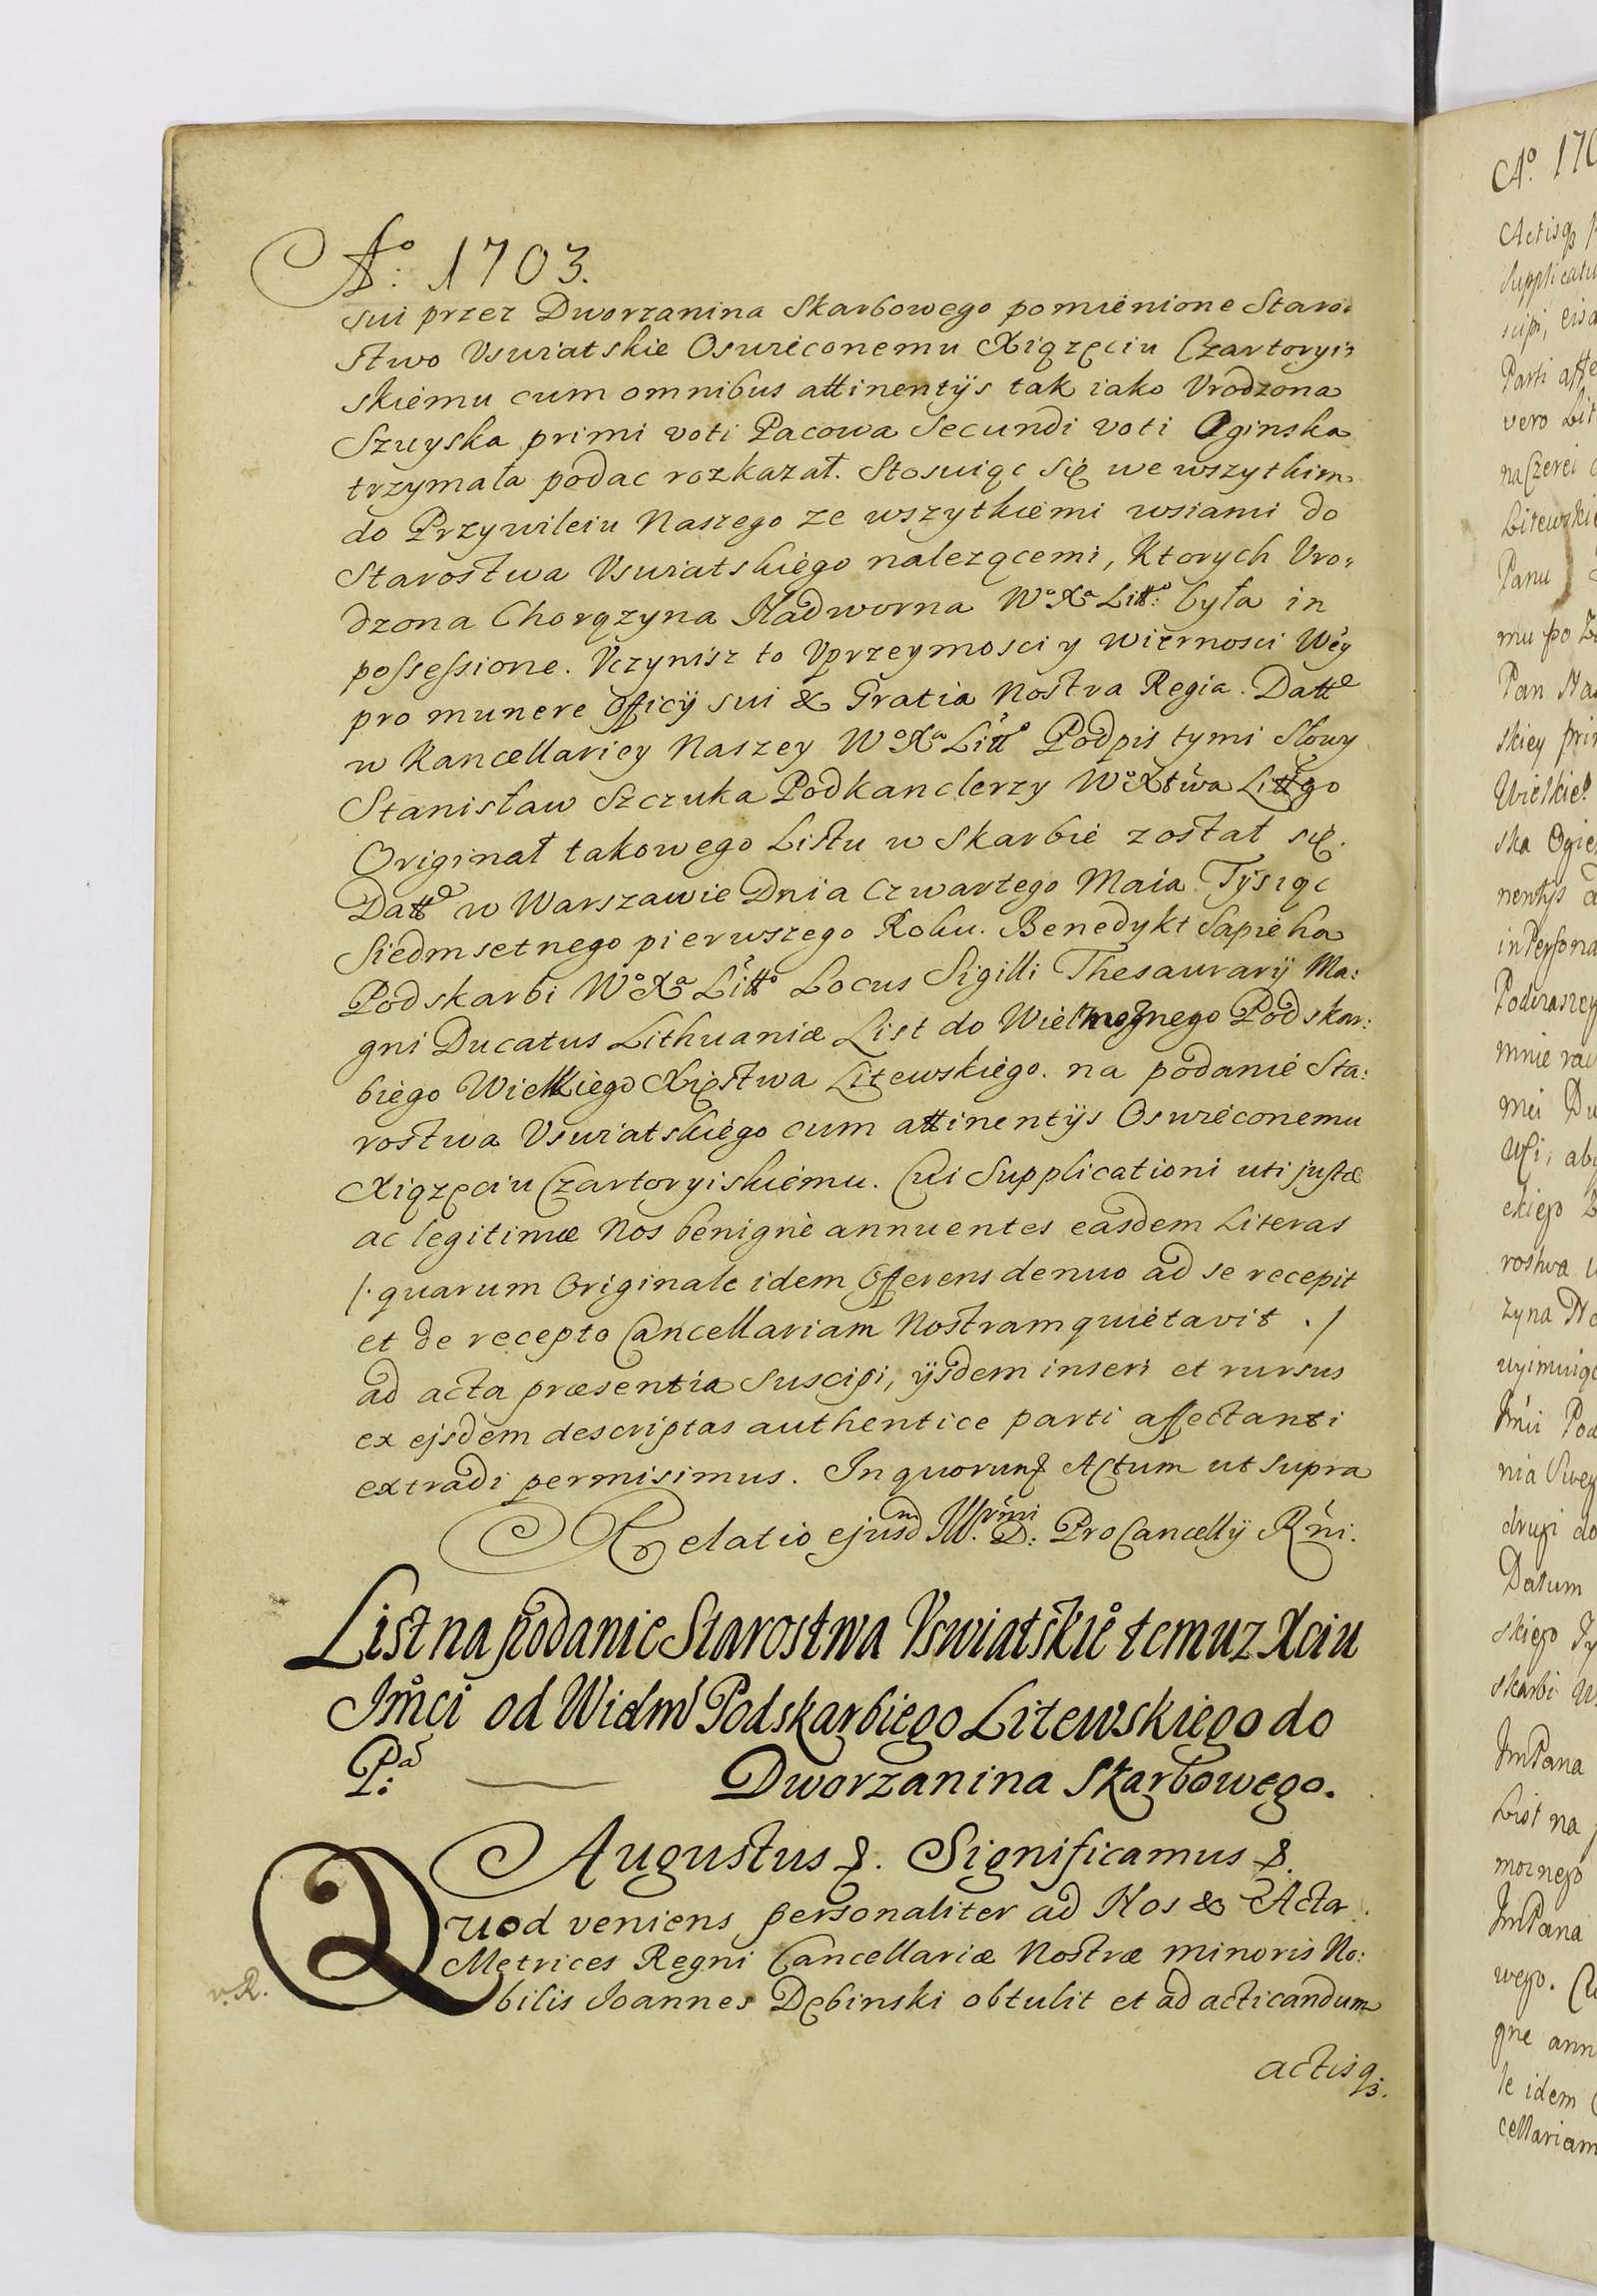 Aº: 1703.
sui przez Dworzanina Skarbowego pomienione Staro:
stwo Uswiatskie Oswieconemu Xiązęciu Czartoryi:
skiemu cum omnibus attinentijs tak iako Urodzona
Szuyska primi voti Pacowa Secundi voti Oginska
trzymała podac rozkazał. Stosuiąc się we wszytkim
do Przywileiu Naszego ze wszytkiemi wsiami do
Starostwa Uswiatskiego nalezącemi, Ktorych Uro:
dzona Chorązyna Nadworna Wº Xª Littº: była in
possessione. Uczynisz to Uprzeymosci y wiernosci Wey
pro munere Officij sui & Gratia Nostra Regia. Dattº
w Kancellariey Naszey Wº Xª Littº Podpis tymi Słowy
Stanisław Szczuka Podkanclerzy Wº Xtwa Littgo
Originał takowego Listu w Skarbie został się.
Dattº w Warszawie Dnia Czwartego Maia Tysiąc
Siedmsetnego pierwszego Roku. Benedykt Sapieha
Podskarbi Wº Xª Littº Locus Sigilli Thesaurarij Ma:
gni Ducatus Lithuaniæ List do Wielmoznego Podskar:
biego Wielkiego Xięstwa Litewskiego. na podanie Sta:
rostwa Uswiatskiego cum attinentijs Oswieconemu
Xiązęciu Czartoryiskiemu. Cui Supplicationi uti justæ
ac legitimæ Nos benignè annuentes easdem Literas
/. quarum Originale idem Offerens denuo ad se recepit
et de recepto Cancellariam Nostram quietavit ./
ad acta præsentia suscipi, ijsdem inseri et rursus
ex ejsdem descriptas authentice parti affectanti
extradi permisimus. In quorum & Actum ut supra
Relatio ejusdm Illrmi D: ProCancellij Rni.
List na podanie Starostwa Uswiatskiº temuz Xciu
Jmci od Wielmº Podskarbiego Litewskiego do
P:ª Dworzanina Skarbowego.
Augustus &. Significamus &.
Quod veniens personaliter ad Nos & Acta
Metrices Regni Cancellariæ Nostræ minoris No:
bilis Joannes Dębinski obtulit et ad acticandum
v. R.
actisq3.
Aº. 170
Actisq3
Supplicatu
scipi,
Parti affe
vero Lit
na Czerei
Litewskie
Panu
mu po
Pan Na
skiey pri
Wielkieº
ska Ogie
nentijs
in Persona
Podwaszey
mnie rac
mei Du
Mci, aby
ekiego
rostwa
zyna Na
uyimuiąc
Jmci Pod
nia Swey
drugi do
Datum
skiego Ty
skarbi
JmPana
List na
moznego
JmPana
wego.
gne ann
le idem
cellariam